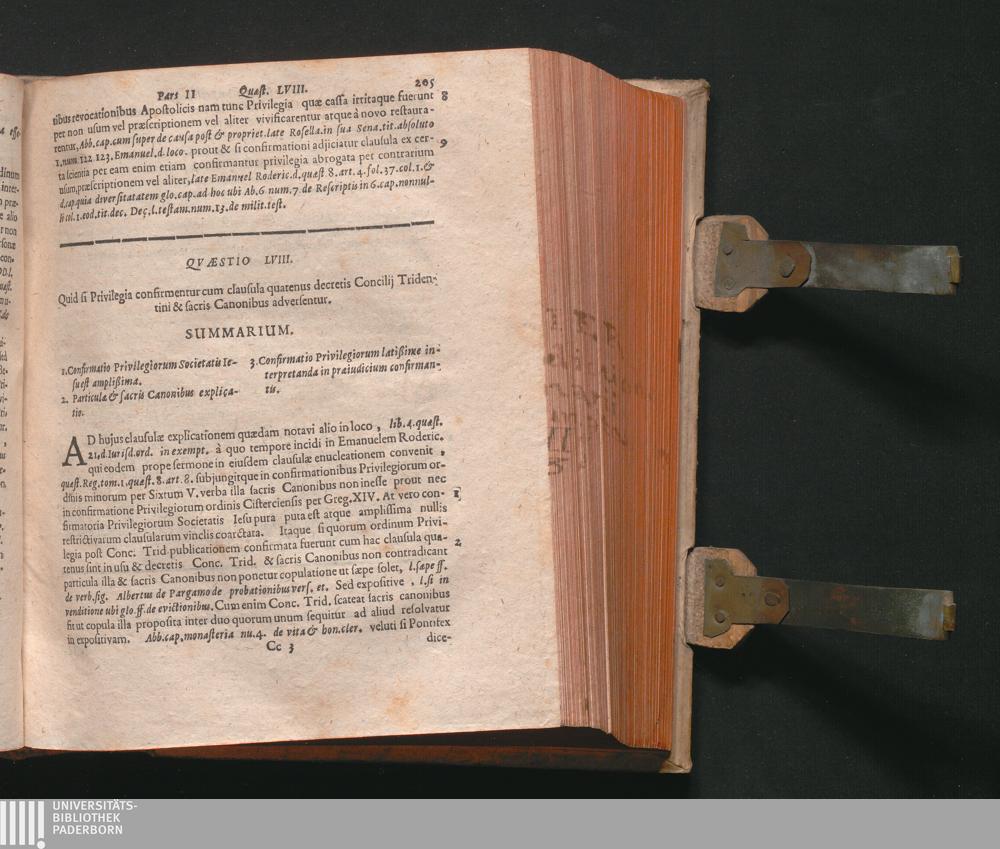 Pars II Quæst. LVIII. 205
tibus revocationibus Apostolicis nam tunc Privilegia quæ cassa irritaque fuerunt 8
per non usum vel præscriptionem vel aliter vivificarentur atque à novo restaura-
rentur, Abb. cap. cum super de causa post & propriet. late Rosella. in sua Sena. tit. absoluto
1. num. 122 123. Emanuel. d. loco. prout & si confirmationi adjiciatur clausula ex cer- 9
ta scientia per eam enim etiam confirmantur privilegia abrogata per contrarium
usum, præscriptionem vel aliter, late Emanuel Roderic. d. quæst. 8. art. 4. fol. 37. col. 1. &
d. cap. quia diversitatatem glo. cap. ad hoc ubi Ab. 6 num. 7 de Rescriptis in 6. cap. nonnul-
li col. 1. eod. tit. dec. Dec. l. testam. num. 13. de milit. test.
QVÆSTIO LVIII.
Quid si Privilegia confirmentur cum clausula quatenus decretis Concilij Triden-
tini & sacris Canonibus adversentur.
SUMMARIUM.
1. Confirmatio Privilegiorum Societatis Ie-
su est amplißima.
2. Particula & sacris Canonibus explica-
tio.
3. Confirmatio Privilegiorum latißime in-
terpretanda in præiudicium confirman-
tis.
AD hujus clausulæ explicationem quædam notavi alio in loco, lib. 4. quæst.
21. d. Iurisd. ord. in exempt. à quo tempore incidi in Emanuelem Roderic.
qui eodem prope sermone in eiusdem clausulæ enucleationem convenit,
quæst. Reg. tom. 1. quæst. 8. art. 8. subjungitque in confirmationibus Privilegiorum or-
dinis minorum per Sixtum V. verba illa sacris Canonibus non inesse prout nec
in confirmatione Privilegiorum ordinis Cisterciensis per Greg. XIV. At vero con- 1
firmatoria Privilegiorum Societatis Iesu pura puta est atque amplissima nullis
restrictivarum clausularum vinclis coarctata. Itaque si quorum ordinum Privi-
legia post Conc. Trid publicationem confirmata fuerunt cum hac clausula qua- 2
tenus sint in usu & decretis Conc. Trid. & sacris Canonibus non contradicant
particula illa & sacris Canonibus non ponetur copulatione ut sæpe solet, l. sæpe ff.
de verb. sig. Albertus de Pargamo de probationibus vers. et. Sed expositive. l. si in
venditione ubi glo. ff. de evictionibus. Cum enim Conc. Trid. scateat sacris canonibus
fit ut copula illa proposita inter duo quorum unum sequitur ad aliud resolvatur
in expositivam. Abb. cap. monasteria nu. 4. de vita & hon. cler. veluti si Pontifex
Cc 3 dice-
UNIVERSITÄTS-
BIBLIOTHEK
PADERBORN